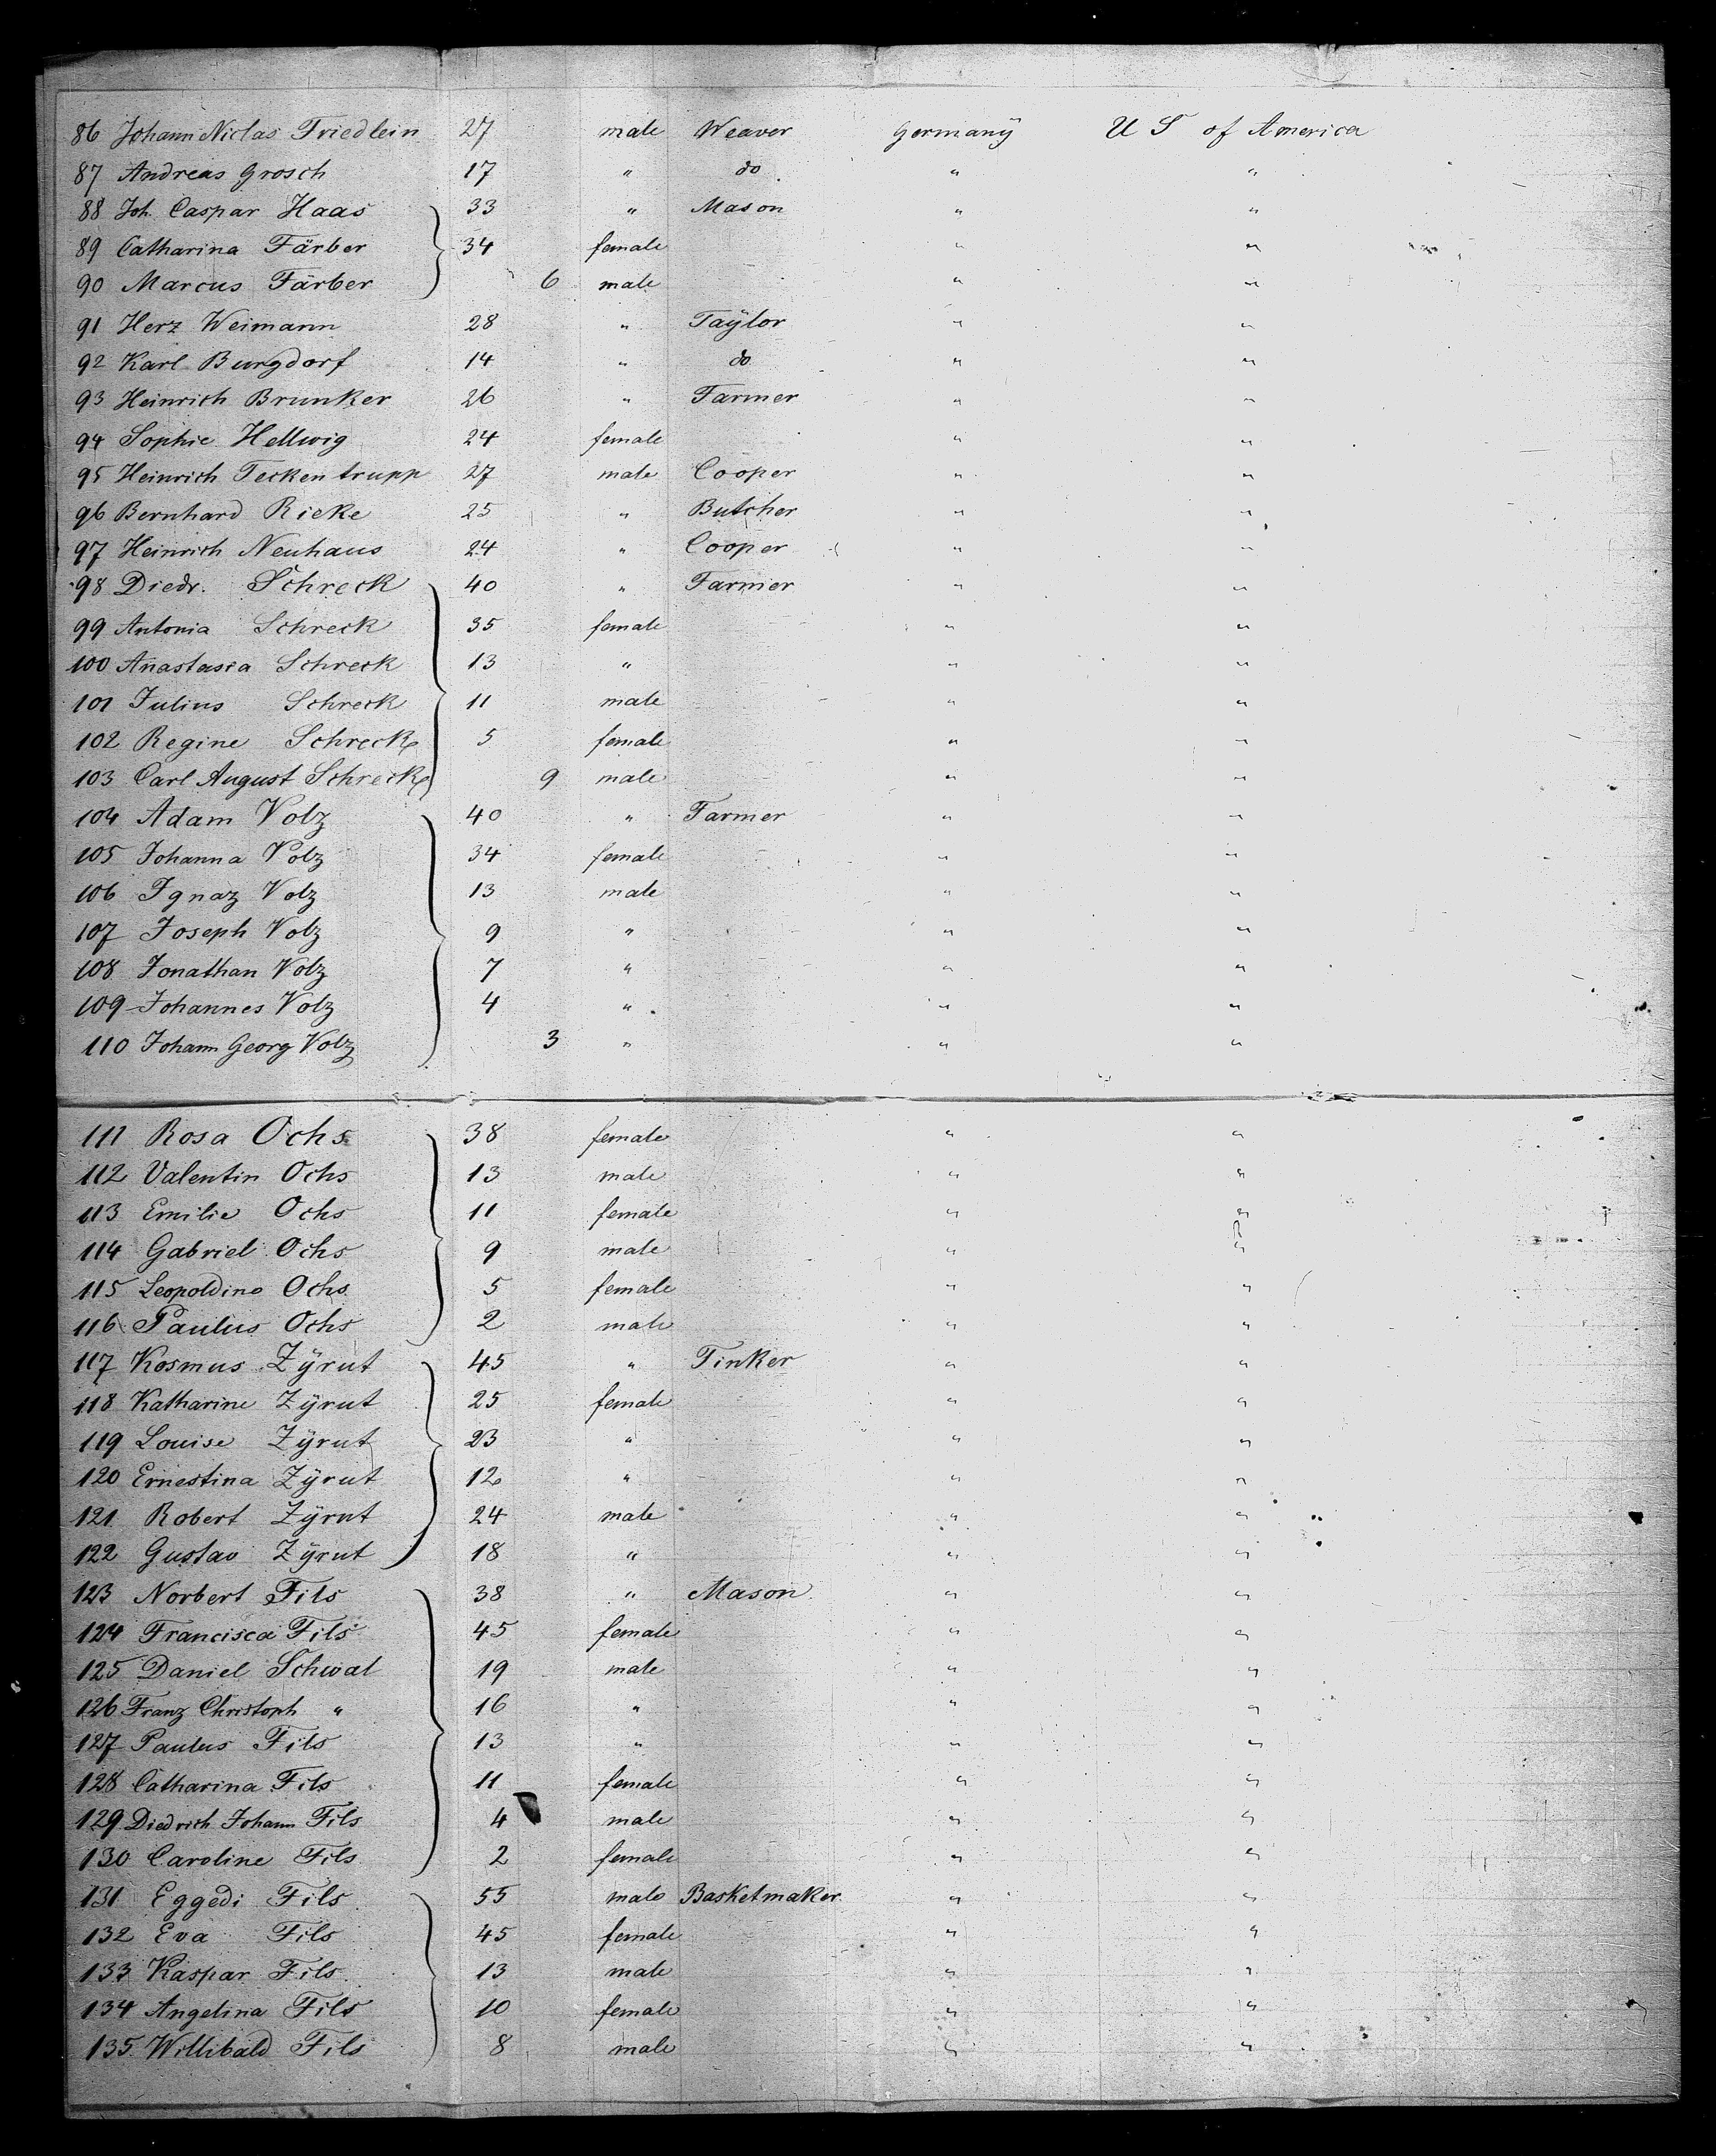 86 Johann Niclas Friedlein 27 male Weaver Germanÿ U S of America
87 Andreas Grosch 17 " do " "
88 Joh. Caspar Haas 33 " Mason " "
89 Catharina Färber 34 female " "
90 Marcus Färber 6 male " "
91 Herz Weimann 28 " Taÿlor " "
92 Karl Burgdorf 14 " do " "
93 Heinrich Brunker 26 " Farmer " "
94 Sophie Hellwig 24 female " "
95 Heinrich Teckentrupp 27 male Cooper " "
96 Bernhard Rieke 25 " Butcher " "
97 Heinrich Neuhaus 24 " Cooper " "
98 Diedr. Schreck 40 " Farmer " "
99 Antonia Schreck 35 female " "
100 Anastasia Schreck 13 " " "
101 Julius Schreck 11 male " "
102 Regine Schreck 5 female " "
103 Carl August Schreck 9 male " "
104 Adam Volz 40 " Farmer " "
105 Johanna Volz 34 female " "
106 Ignaz Volz 13 male " "
107 Joseph Volz 9 " " "
108 Jonathan Volz 7 " " "
109 Johannes Volz 4 " " "
110 Johann Georg Volz 3 " " "
111 Rosa Ochs 38 female " "
112 Valentin Ochs 13 male " "
113 Emilie Ochs 11 female " "
114 Gabriel Ochs 9 male " "
115 Leopoldine Ochs 5 female " "
116 Paulus Ochs 2 male " "
117 Kosmus Zÿrut 45 " Tinker " "
118 Katharine Zÿrut 25 female " "
119 Louise Zÿrut 23 " " "
120 Ernestina Zÿrut 12 " " "
121 Robert Zÿrut 24 male " "
122 Gustav Zÿrut 18 " " "
123 Norbert Fils 38 " Mason " "
124 Francisca Fils 45 female " "
125 Daniel Schwal 19 male " "
126 Franz Christoph " 16 " " "
127 Paulus Fils 13 " " "
128 Catharina Fils 11 female " "
129 Diedrich Johann Fils 4 male " "
130 Caroline Fils 2 female " "
131 Eggedi Fils 55 male Basketmaker " "
132 Eva Fils 45 female " "
133 Kaspar Fils 13 male " "
134 Angelina Fils 10 female " "
135 Willibald Fils 8 male " "